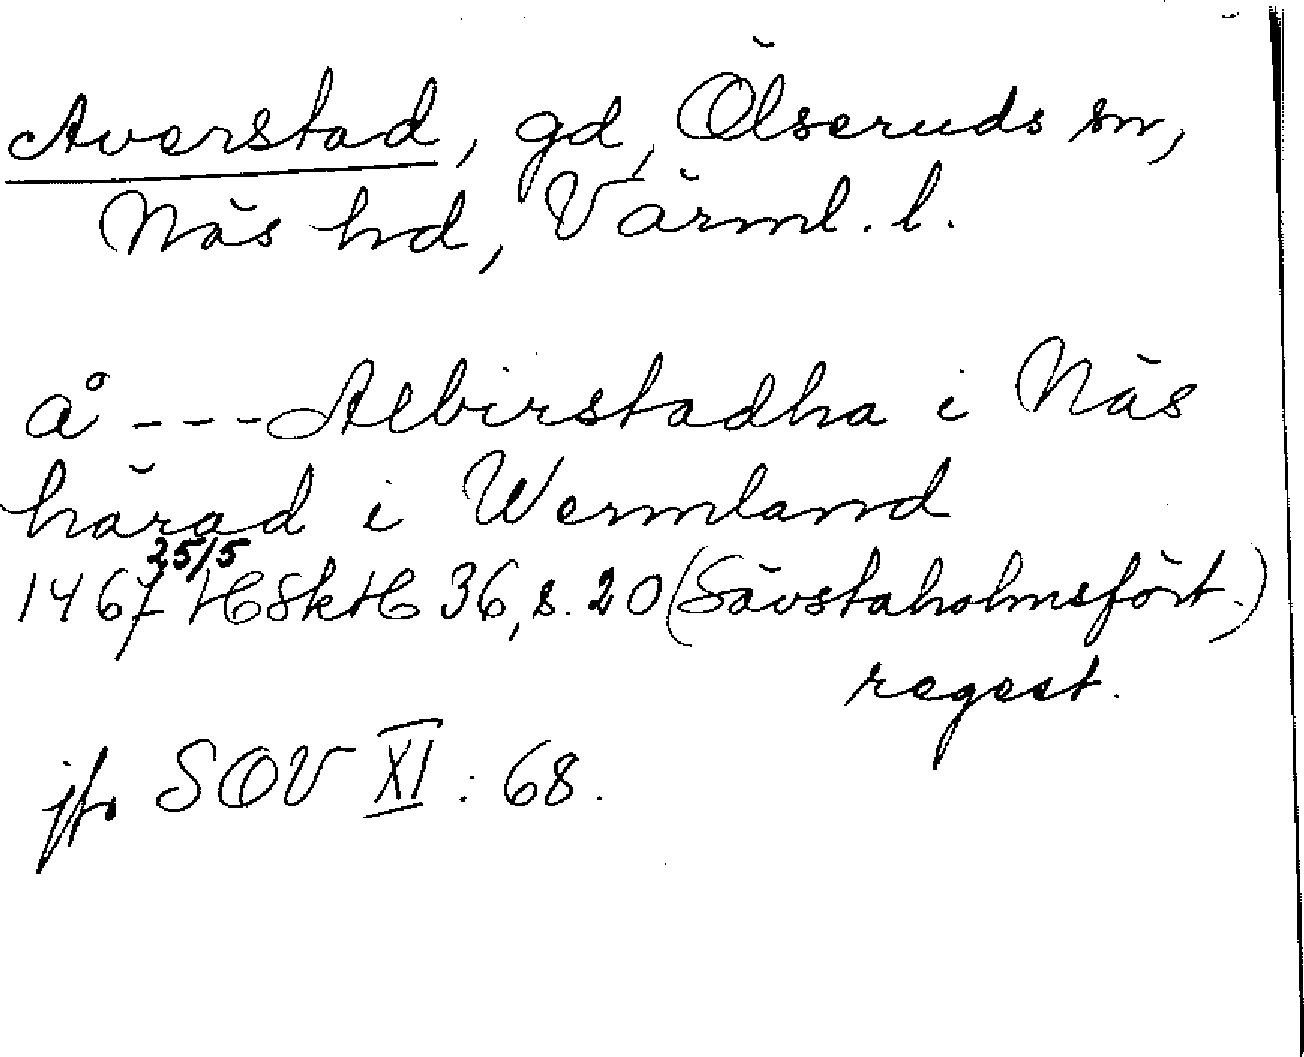 Averstad, gd, Ölseruds sn,
Näs hd, Värml. l.
å --- Albirstadha i Näs
härad i Wermland
1467 25/5 HSkH 36, s. 20 (Sävstaholmsfört.)
regest.
jfr SOV XI: 68.